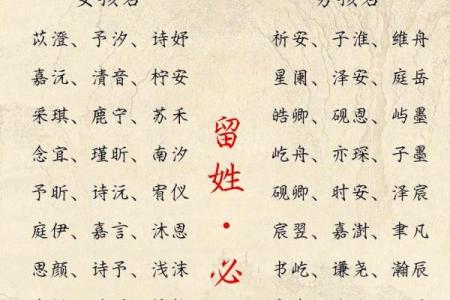 女孩名
苡澄、予汐、诗妤
嘉沅、清音、柠安
采琪、鹿宁、苏禾
念宜、瑾昕、南汐
予昕、诗沅、宥仪
庭伊、嘉言、沐恩
思颜、诗予、浅沫
留姓·必
男孩名
祈安、子淮、维舟
星阑、泽安、庭岳
皓卿、砚恩、屿墨
屹舟、亦琛、子墨
砚卿、时安、泽宸
宸翌、嘉澍、聿凡
书屹、谦尧、瀚辰